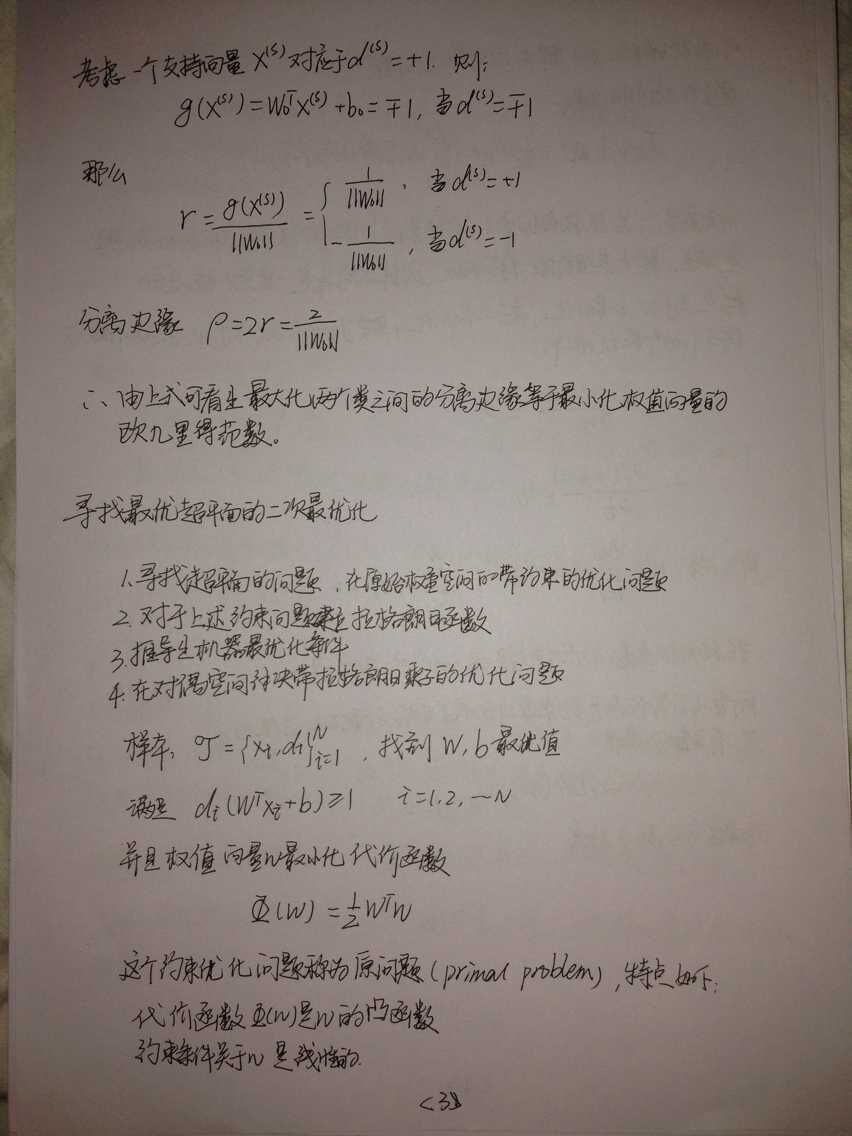 考虑一个支持向量 X⁽ˢ⁾ 对应于 d⁽ˢ⁾=+1. 则:
g(X⁽ˢ⁾) = W₀ᵀX⁽ˢ⁾+b₀ = ∓1, 当d⁽ˢ⁾=∓1
那么
r = g(X⁽ˢ⁾)/||W₀|| = { 1/||W₀|| , 当d⁽ˢ⁾=+1
-1/||W₀|| , 当d⁽ˢ⁾=-1
分离边缘 ρ=2r=2/||W₀||
∴ 由上式可看出最大化两个类之间的分离边缘等于最小化权值向量的
欧几里得范数。
寻找最优超平面的二次最优化
1.寻找超平面的问题,在原始权重空间的带约束的优化问题
2.对于上述约束问题建立拉格朗日函数
3.推导出机器最优化条件
4.在对偶空间解决带拉格朗日乘子的优化问题
样本: 𝒯={xᵢ,dᵢ}ᵢ₌₁ᴺ , 找到 W,b 最优值
满足 dᵢ(Wᵀxᵢ+b)≥1 i=1,2,…N
并且权值向量w最小化代价函数
Φ(W) = ½WᵀW
这个约束优化问题称为原问题(primal problem),特点如下:
代价函数Φ(w)是w的凸函数
约束条件关于w是线性的.
<38